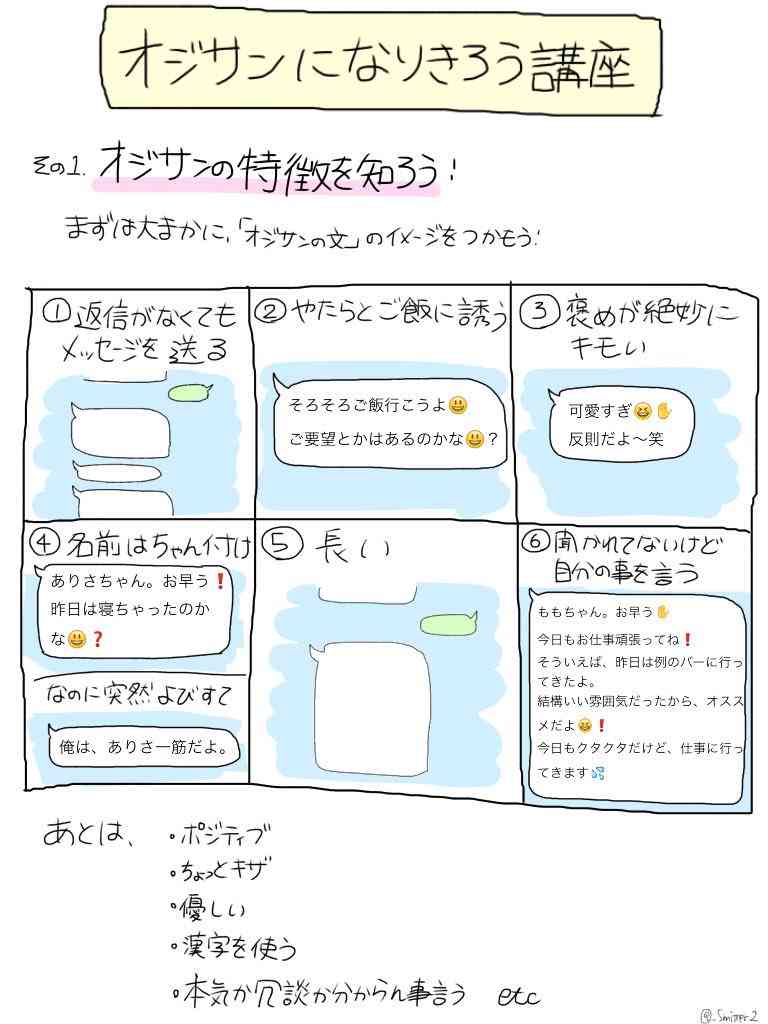 オジサンになりきろう講座
その1. オジサンの特徴を知ろう!
まずは大まかに、「オジサンの文」のイメージをつかもう!
① 返信がなくても
メッセージを送る
② やたらとご飯に誘う
そろそろご飯行こうよ😃
ご要望とかはあるのかな😃?
③ 褒めが絶妙に
キモい
可愛すぎ😆✋
反則だよ〜笑
④ 名前はちゃん付け
ありさちゃん。お早う❗
昨日は寝ちゃったのか
な😃❓
なのに突然よびすて
俺は、ありさ一筋だよ。
⑤ 長い
⑥ 聞かれてないけど
自分の事を言う
ももちゃん。お早う✋
今日もお仕事頑張ってね❗
そういえば、昨日は例のバーに行っ
てきたよ。
結構いい雰囲気だったから、オスス
メだよ😆❗
今日もクタクタだけど、仕事に行っ
てきます💦
あとは、
・ポジティブ
・ちょっとキザ
・優しい
・漢字を使う
・本気か冗談か分からん事言う etc